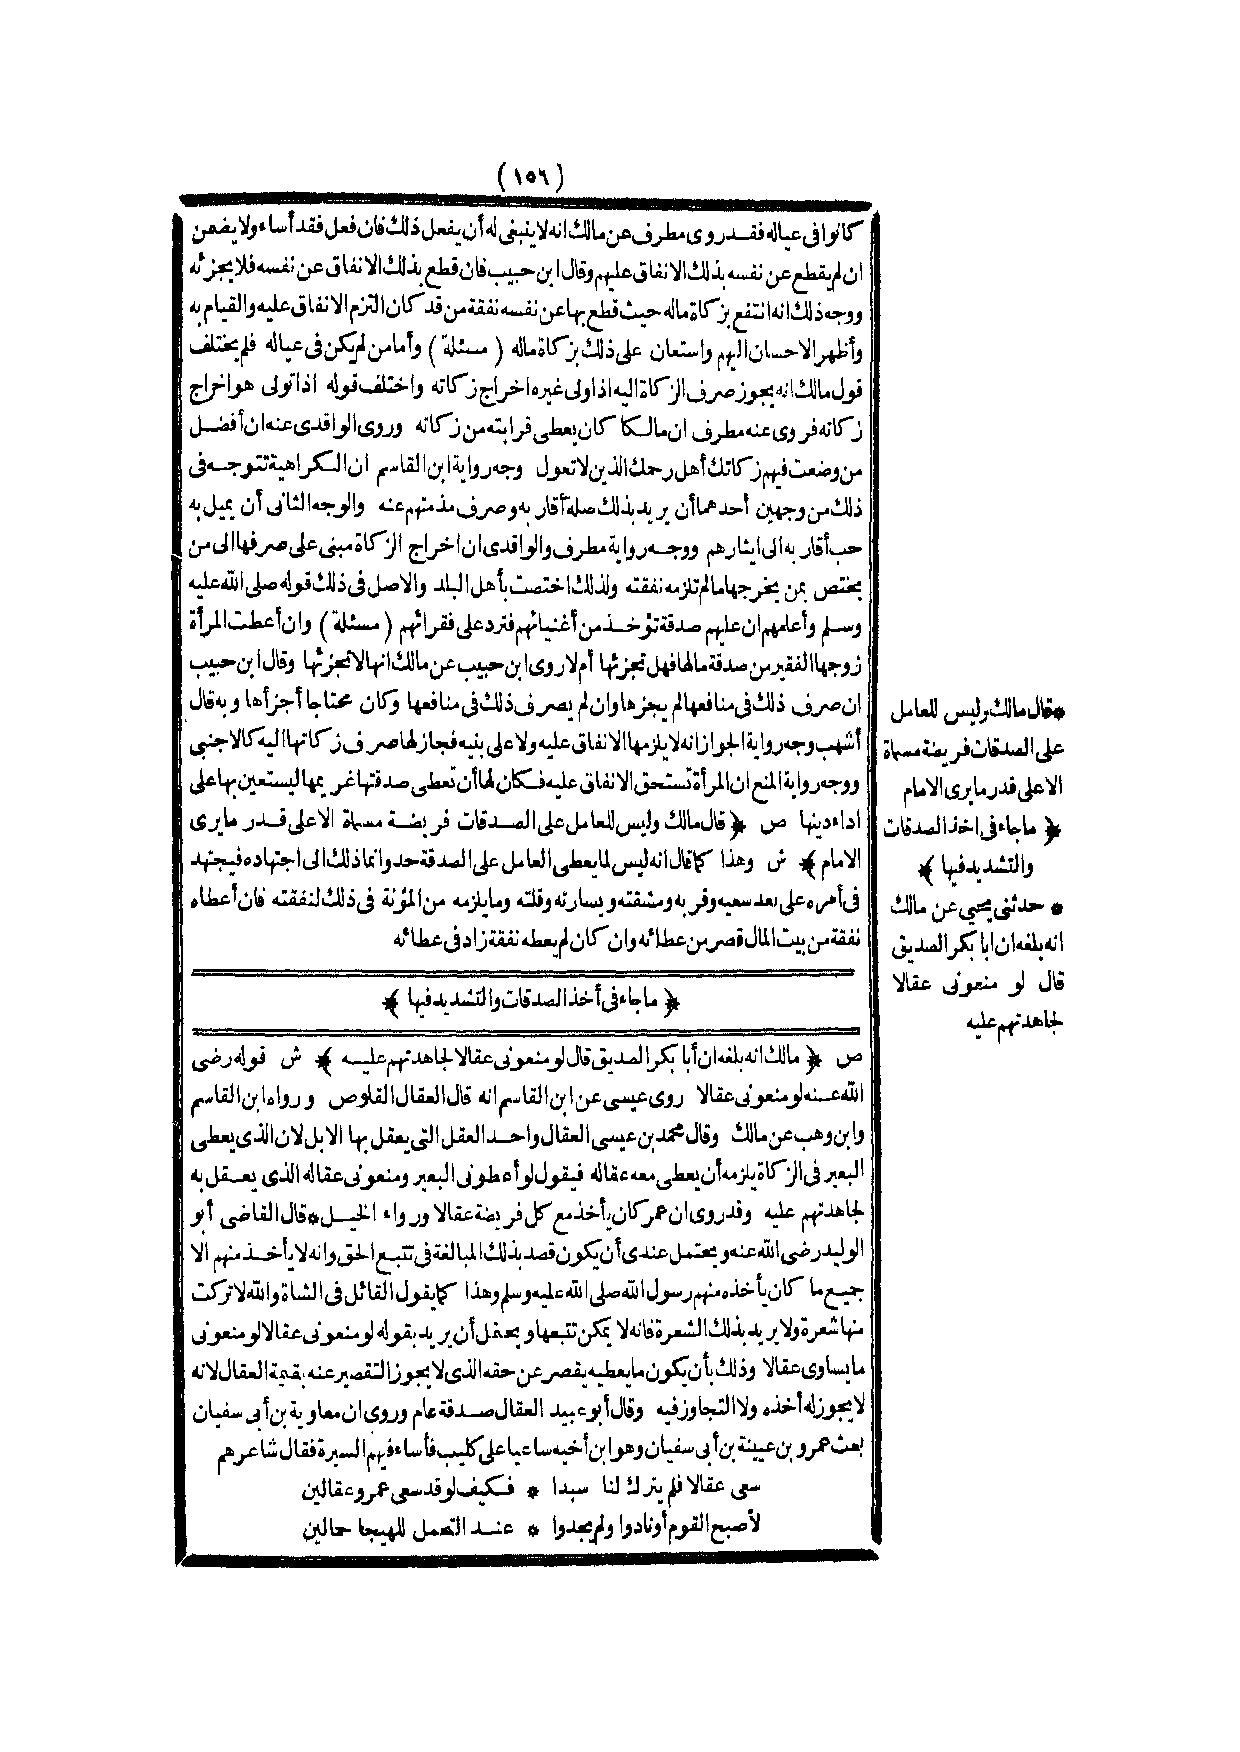 (١٥٦)
كانوا فى عياله فقد روى مطرف عن مالك انه لا ينبغى له أن يفعل ذلك فان فعل فقد أساء ولا يضمن
ان لم يقطع عن نفسه بذلك الانفاق عليهم وقال ابن حبيب فان قطع بذلك الانفاق عن نفسه فلا يجزئه
ووجه ذلك انه انتفع بزكاة ماله حيث قطع بها عن نفسه نفقة من قد كان التزم الانفاق عليه والقيام به
وأظهر الاحسان اليهم واستعان على ذلك بزكاة ماله (مسئلة) وأما من لم يكن فى عياله فلم يختلف
قول مالك انه يجوز صرف الزكاة اليه اذا ولى غيره اخراج زكاته واختلف قوله اذا تولى هو اخراج
زكاته فروى عنه مطرف ان مالكا كان يعطى قرابته من زكاته وروى الواقدى عنه ان أفضل
من وضعت فيهم زكاتك أهل رحمك الذين لا تعول وجه رواية ابن القاسم ان الكراهية تتوجه فى
ذلك من وجهين أحدهما أن يريد بذلك صلة أقاربه وصرف مذمتهم عنه والوجه الثانى أن يميل به
حب أقاربه الى ايثارهم ووجه رواية مطرف والواقدى ان اخراج الزكاة مبنى على صرفها الى من
يختص بمن يخرجها مالم تلزمه نفقته ولذلك اختصت بأهل البلد والاصل فى ذلك قوله صلى الله عليه
وسلم وأعلمهم ان عليهم صدقة تؤخذ من أغنيائهم فترد على فقرائهم (مسئلة) وان أعطت المرأة
زوجها الفقير من صدقة مالها فهل تجزئها أم لا روى ابن حبيب عن مالك انها لا تجزئها وقال ابن حبيب
ان صرف ذلك فى منافعها لم يجزها وان لم يصرف ذلك فى منافعها وكان محتاجا أجزأها وبه قال
أشهب وجه رواية الجواز انه لا يلزمها الانفاق عليه ولا على بنيه فجاز لها صرف زكاتها اليه كالاجنبى
ووجه رواية المنع ان المرأة تستحق الانفاق عليه فكان لها أن تعطى صدقتها غريمها ليستعين بها على
اداء دينها ص ﴿ قال مالك وليس للعامل على الصدقات فريضة مسماة الا على قدر ما يرى
الامام ﴾ ش وهذا كما قال انه ليس لما يعطى العامل على الصدقة حد وانما ذلك الى اجتهاده فيجتهد
فى أمره على بعد سعيه وقربه ومشقته ويسارته وقلته وما يلزمه من المؤنة فى ذلك لنفقته فان أعطاه
نفقة من بيت المال قصر من عطائه وان كان لم يعطه نفقة زاد فى عطائه
﴿ ما جاء فى أخذ الصدقات والتشديد فيها ﴾
ص ﴿ مالك انه بلغه ان أبا بكر الصديق قال لو منعونى عقالا لجاهدتهم عليه ﴾ ش قوله رضى
الله عنه لو منعونى عقالا روى عيسى عن ابن القاسم انه قال العقال القلوص ورواه ابن القاسم
وابن وهب عن مالك وقال محمد بن عيسى العقال واحد العقل التى يعقل بها الابل لان الذى يعطى
البعير فى الزكاة يلزمه أن يعطى معه عقاله فيقول لو أعطونى البعير ومنعونى عقاله الذى يعقل به
لجاهدتهم عليه وقد روى ان عمر كان يأخذ مع كل فريضة عقالا ورواء الخيل * قال القاضى أبو
الوليد رضى الله عنه ويحتمل عندى أن يكون قصد بذلك المبالغة فى تتبع الحق وانه لا يأخذ منهم الا
جميع ما كان يأخذه منهم رسول الله صلى الله عليه وسلم وهذا كما يقول القائل فى الشاة والله لا تركت
منها شعرة ولا يريد بذلك الشعرة فانه لا يمكن تتبعها ويحتمل أن يريد بقوله لو منعونى عقالا لو منعونى
ما يساوى عقالا وذلك بأن يكون ما يعطيه يقصر عن حقه الذى لا يجوز التقصير عنه بقيمة العقال لانه
لا يجوز له أخذه ولا التجاوز فيه وقال أبو عبيد العقال صدقة عام وروى ان معاوية بن أبى سفيان
بعث عمرو بن عيينة بن أبى سفيان وهو ابن أخيه ساعيا على كليب فأساء فيهم السيرة فقال شاعرهم
سعى عقالا فلم يترك لنا سبدا * فكيف لو قد سعى عمرو عقالين
لأصبح القوم أوتادوا ولم يجدوا * عند التحمل للهيجا جمالين
* قال مالك وليس للعامل
على الصدقات فريضة مسماة
الا على قدر ما يرى الامام
﴿ ما جاء فى اخذ الصدقات
والتشديد فيها ﴾
* حدثنى يحيى عن مالك
انه بلغه ان ابا بكر الصديق
قال لو منعونى عقالا
لجاهدتهم عليه